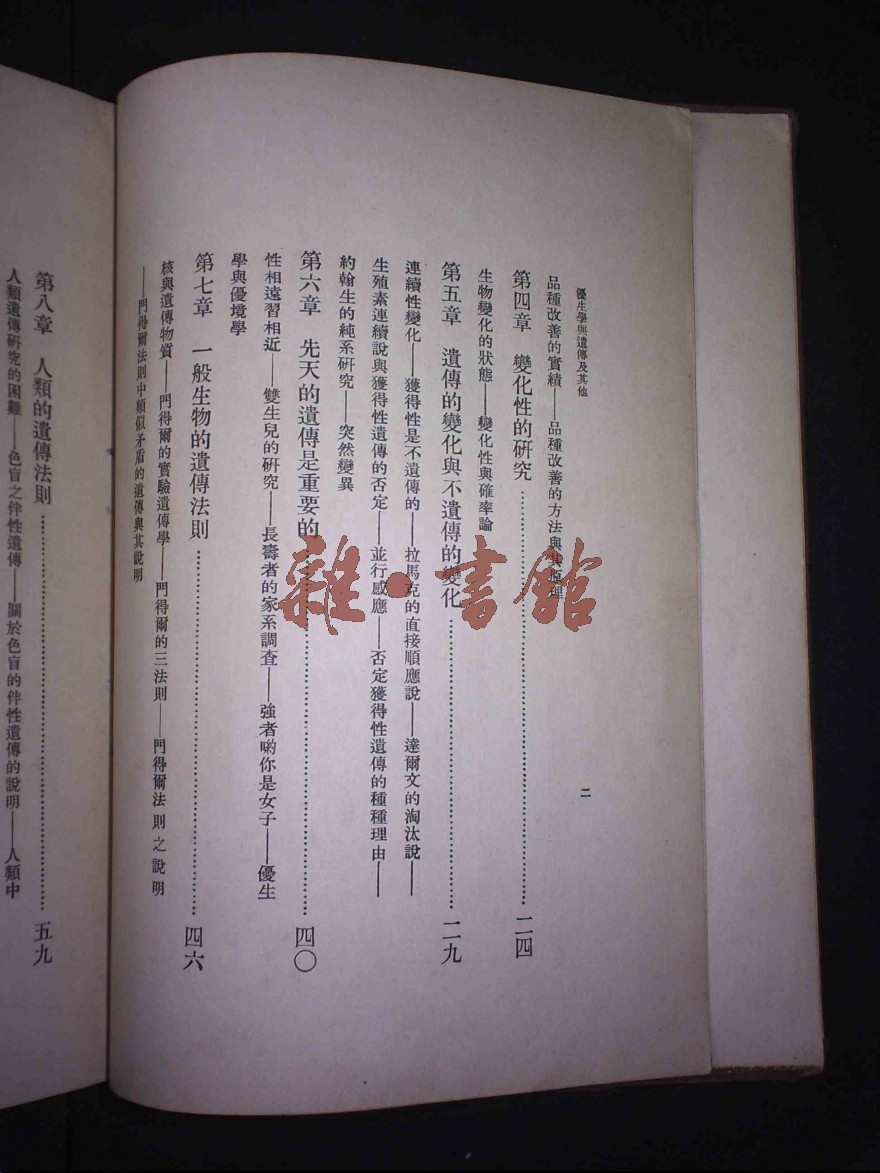 優生學與遺傳及其他
二
品種改善的實績——品種改善的方法與其原理
第四章 變化性的研究……二四
生物變化的狀態——變化性與確率論
第五章 遺傳的變化與不遺傳的變化……二九
連續性變化——獲得性是不遺傳的——拉馬克的直接順應說——達爾文的淘汰說——
生殖素連續說與獲得性遺傳的否定——並行感應——否定獲得性遺傳的種種理由——
約翰生的純系研究——突然變異
第六章 先天的遺傳是重要的……四〇
性相遠習相近——雙生兒的研究——長壽者的家系調查——強者喲你是女子——優生
學與優境學
第七章 一般生物的遺傳法則……四六
核與遺傳物質——門得爾的實驗遺傳學——門得爾的三法則——門得爾法則之說明
——門得爾法則中類似矛盾的遺傳與其說明
第八章 人類的遺傳法則……五九
人類遺傳研究的困難——色盲之伴性遺傳——關於色盲的伴性遺傳的說明——人類中
雜·書館